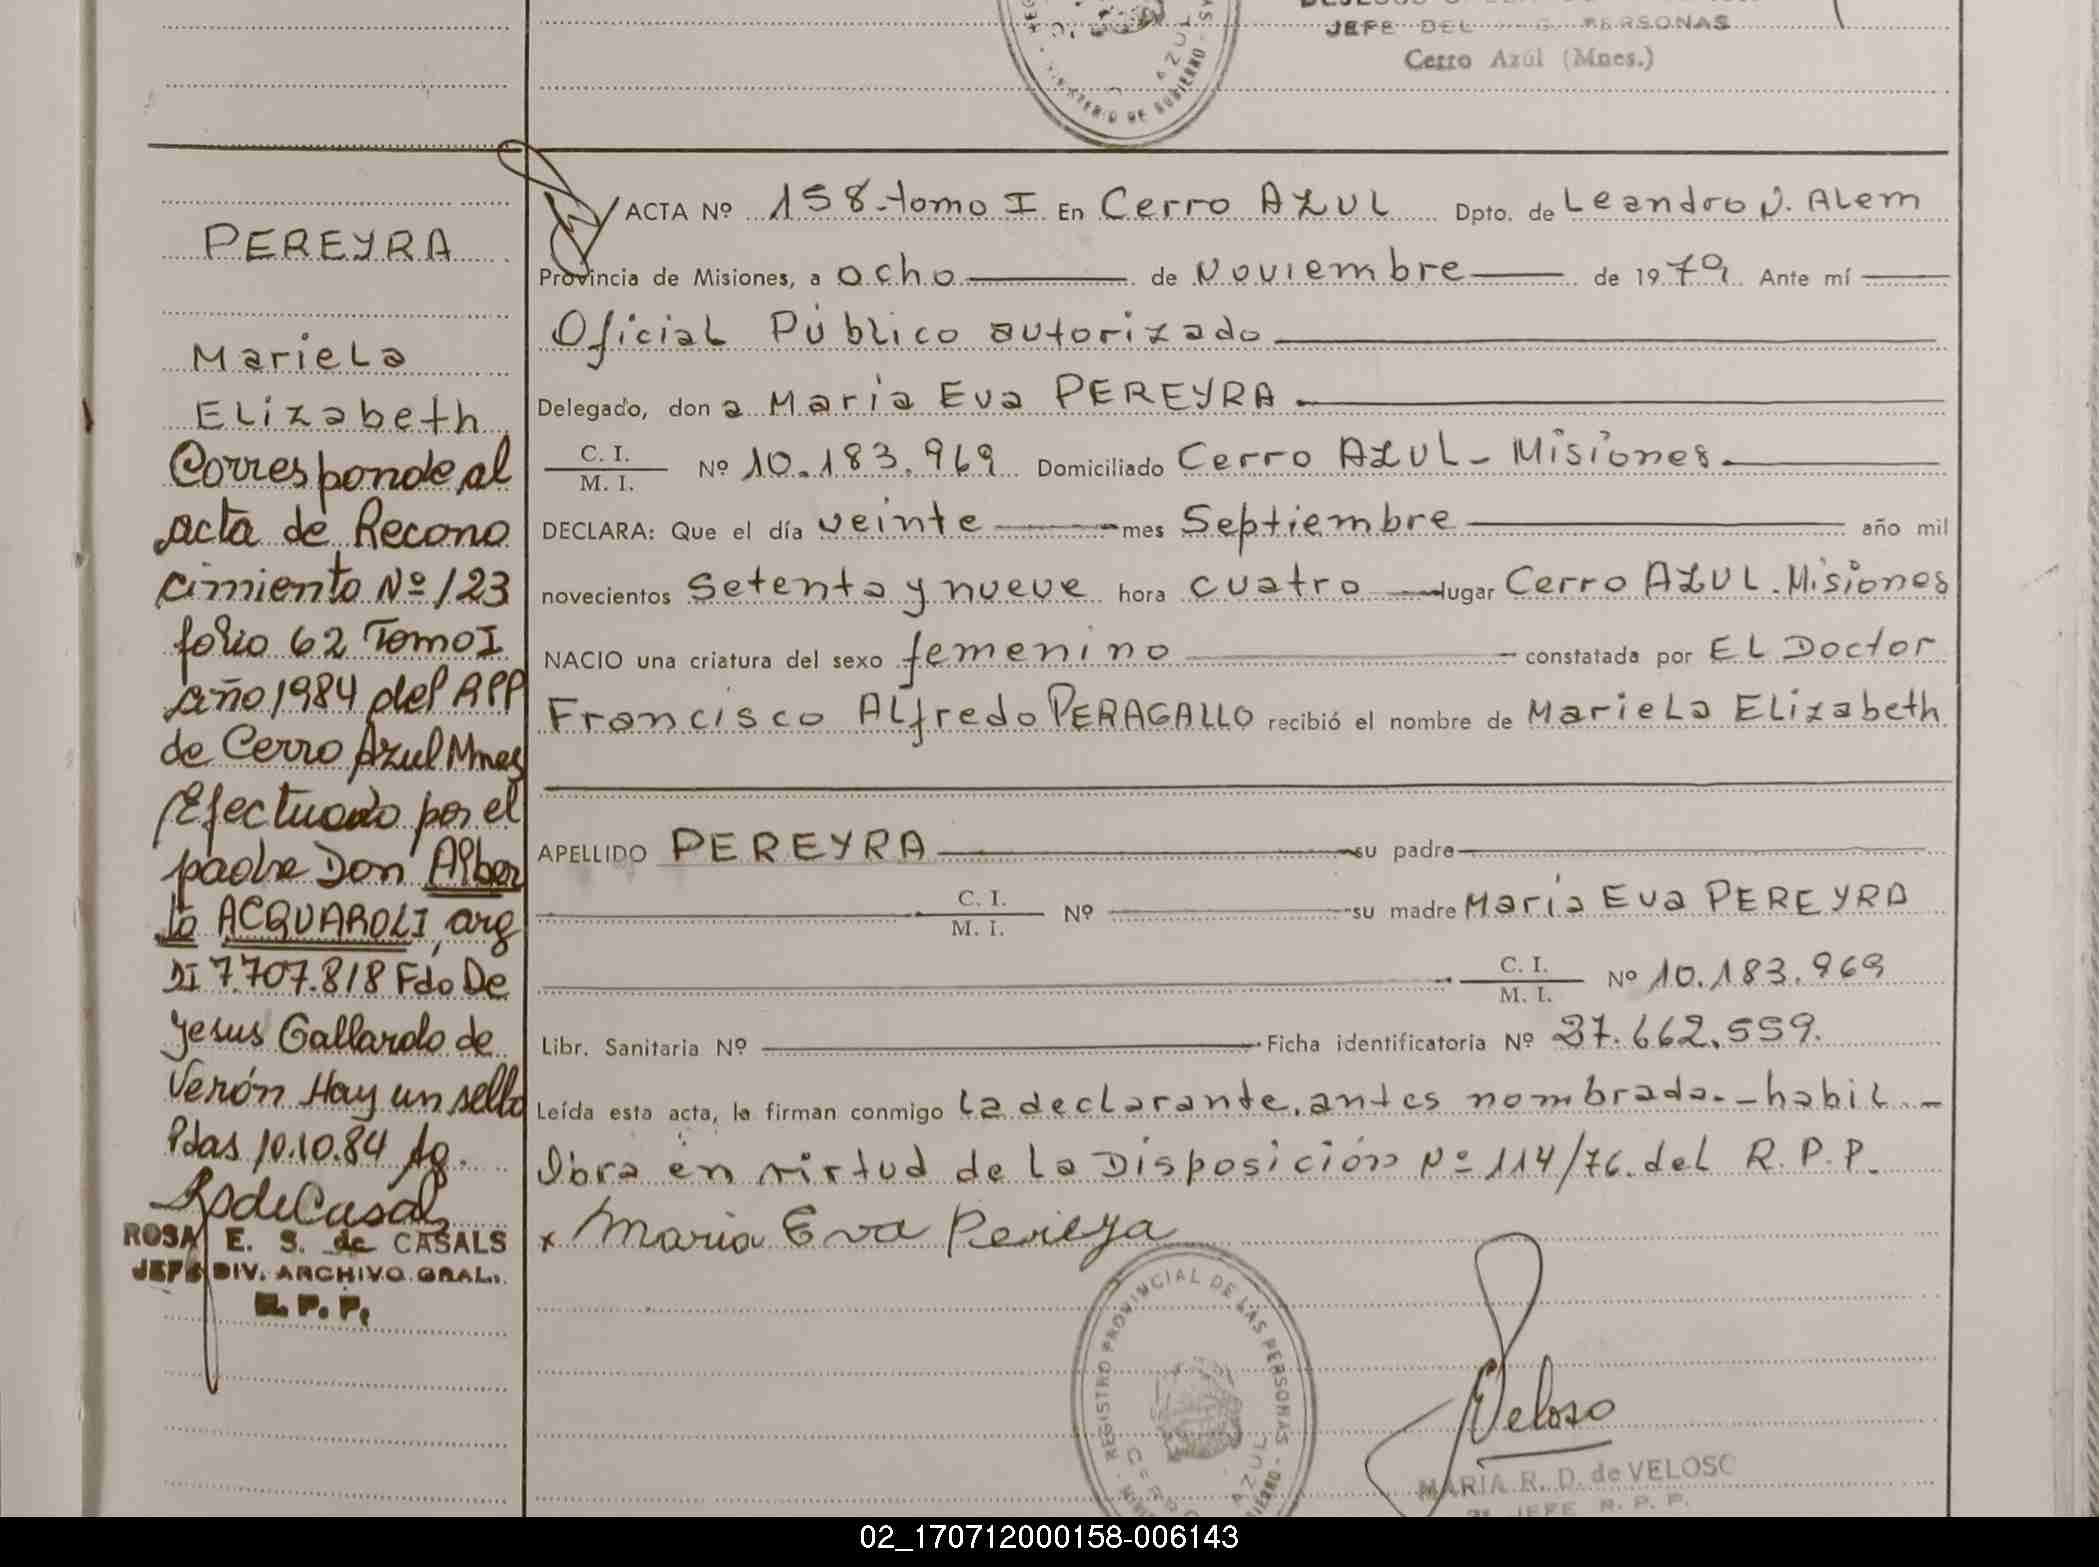 JEFE DEL PERSONAS
Cerro Azúl (Mnes.)
MINISTERIO DE GOBIERNO
AZUL
PEREYRA
Mariela
Elizabeth
Corresponde al
acta de Recono
cimiento Nº 123
folio 62 Tomo I
año 1984 del RPP
de Cerro Azul Mnes
Efectuado por el
padre Don Alber
to ACQUAROLI, arg
DI 7.707.818 Fdo De
Jesus Gallardo de
Verón Hay un sello
Pdas 10.10.84 Ag.
RSdeCasals
ROSA E. S. de CASALS
JEFE DIV. ARCHIVO GRAL.
R. P. P.
ACTA Nº 158-tomo I En Cerro AZUL Dpto. de Leandro N. Alem
Provincia de Misiones, a ocho de Noviembre de 1979 Ante mí
Oficial Público autorizado
Delegado, don a María Eva PEREYRA
C. I.
M. I. Nº 10.183.969 Domiciliado Cerro AZUL - Misiones
DECLARA: Que el día veinte mes Septiembre año mil
novecientos Setenta y nueve hora cuatro lugar Cerro AZUL. Misiones
NACIO una criatura del sexo femenino constatada por EL Doctor
Francisco ALfredo PERAGALLO recibió el nombre de Mariela Elizabeth
APELLIDO PEREYRA su padre
C. I.
M. I. Nº su madre María Eva PEREYRA
C. I.
M. I. Nº 10.183.969
Libr. Sanitaria Nº Ficha identificatoria Nº 27.662.559.
Leída esta acta, la firman conmigo la declarante, antes nombrada.- habil.-
Obra en virtud de la Disposición Nº 114/76. del R.P.P.
x Maria Eva Pereyra
REGISTRO PROVINCIAL DE LAS PERSONAS
CERRO AZUL
Veloso
MARIA R. D. de VELOSO
JEFE R. P. P.
02_170712000158-006143